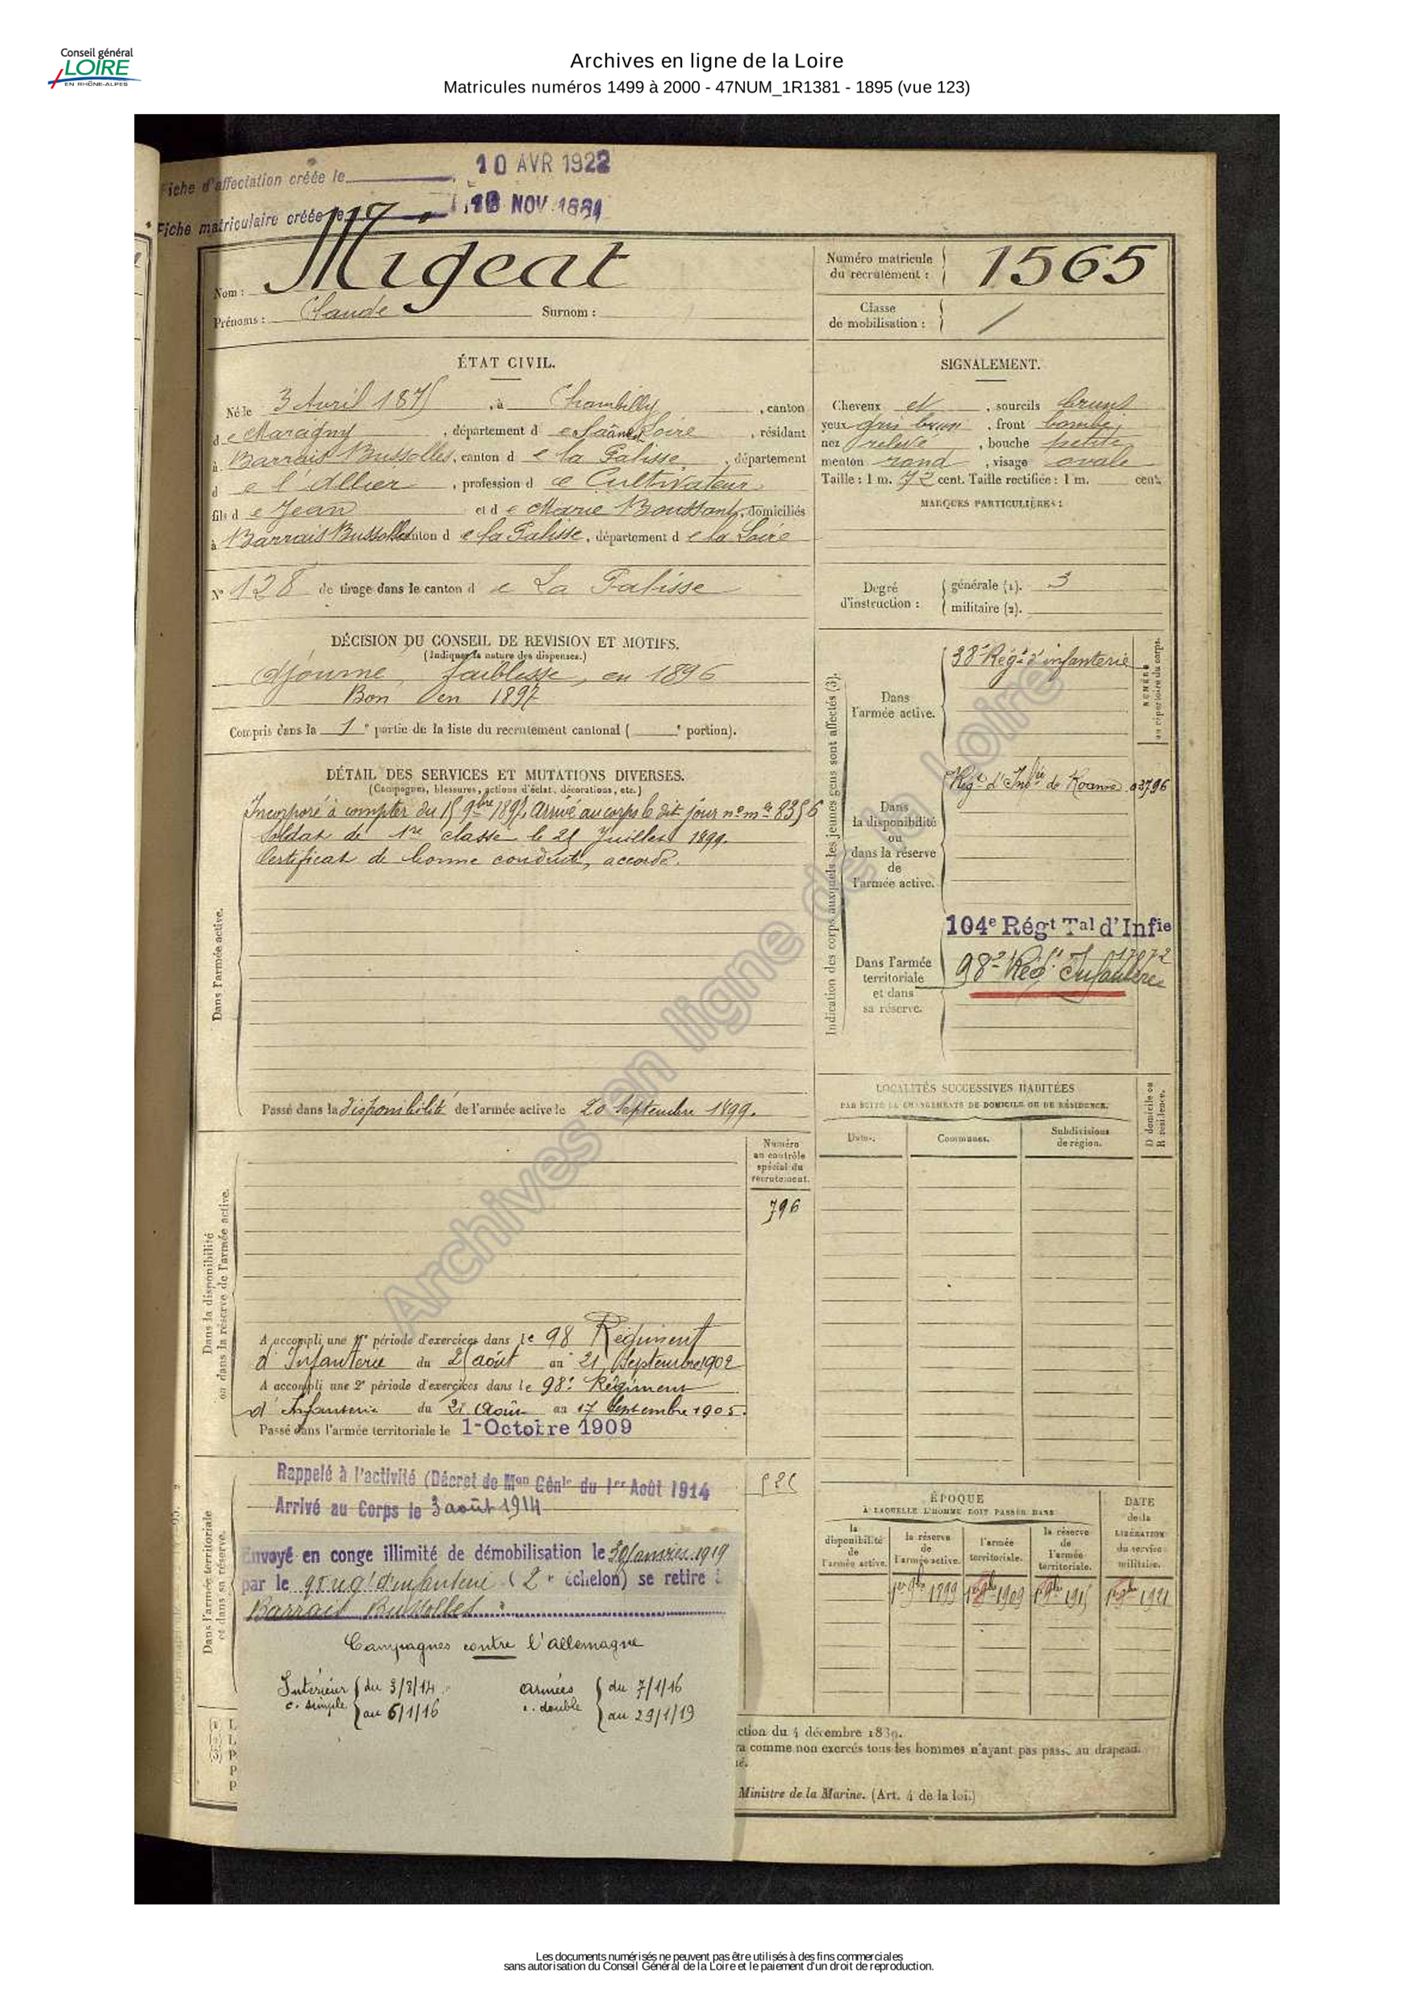 Conseil général
LOIRE
EN RHÔNE-ALPES
Archives en ligne de la Loire
Matricules numéros 1499 à 2000 - 47NUM_1R1381 - 1895 (vue 123)
Fiche d'affectation créée le 10 AVR 1922
Fiche matriculaire créée le NOV
Nom : Migeat
Prénoms : Claude Surnom :
Numéro matricule du recrutement : 1565
Classe de mobilisation :
ÉTAT CIVIL.
Né le 3 Avril 1875, à Chambilly, canton
de Maragny, département de Saône et Loire, résidant
à Barrais Bussolles, canton de la Palisse, département
de l'Allier, profession de Cultivateur
fils de Jean et de Marie Boussant, domiciliés
à Barrais Bussolles canton de la Palisse, département de la Loire
N° 128 de tirage dans le canton de La Palisse
SIGNALEMENT.
Cheveux et, sourcils bruns
yeux gris brun, front bombé
nez relevé, bouche petite
menton rond, visage ovale
Taille : 1 m. 72 cent. Taille rectifiée : 1 m. cent.
MARQUES PARTICULIÈRES :
Degré d'instruction : générale (1). 3
militaire (2).
DÉCISION DU CONSEIL DE REVISION ET MOTIFS.
(Indiquer la nature des dispenses.)
Ajourné, faiblesse, en 1896
Bon en 1897
Compris dans la 1e partie de la liste du recrutement cantonal ( e portion).
DÉTAIL DES SERVICES ET MUTATIONS DIVERSES.
(Campagnes, blessures, actions d'éclat, décorations, etc.)
Incorporé à compter du 15 9bre 1897, Arrivé au corps le dit jour n° mle 8356
Soldat de 1re classe le 21 Juillet 1899.
Certificat de bonne conduite, accordé.
Dans l'armée active.
Passé dans la disponibilité de l'armée active le 20 Septembre 1899.
Indication des corps auxquels les jeunes gens sont affectés (3).
NUMÉRO au répertoire du corps.
Dans l'armée active.
38e Régt d'infanterie
Dans la disponibilité ou dans la réserve de l'armée active.
Régt d'Infrie de Roanne 03796
Dans l'armée territoriale et dans sa réserve.
104e Régt Tal d'Infie
17072
98e Régt Infanterie
LOCALITÉS SUCCESSIVES HABITÉES
PAR SUITE DE CHANGEMENTS DE DOMICILE OU DE RÉSIDENCE.
Dates.
Communes.
Subdivisions de région.
D domicile ou R résidence.
Dans la disponibilité ou dans la réserve de l'armée active.
Numéro au contrôle spécial du recrutement.
796
A accompli une 1re période d'exercices dans le 98 Régiment
d'Infanterie du 25 août au 21 Septembre 1902
A accompli une 2e période d'exercices dans le 98e Régiment
d'Infanterie du 21 Août au 17 Septembre 1905.
Passé dans l'armée territoriale le 1er Octobre 1909
Dans l'armée territoriale et dans sa réserve.
Rappelé à l'activité (Décret de Mon Génle du 1er Août 1914
Arrivé au Corps le 3 août 1914
Envoyé en congé illimité de démobilisation le 30 Janvier 1919
par le régt d'infanterie (2e échelon) se retire à
Barrais Bussolles
Campagnes contre l'allemagne
Intérieur c. simple du 3/8/14 au 6/1/16
Armées c. double du 7/1/16 au 29/1/19
ÉPOQUE
À LAQUELLE L'HOMME DOIT PASSER DANS
la disponibilité de l'armée active.
la réserve de l'armée active.
l'armée territoriale.
la réserve de l'armée territoriale.
DATE de la LIBÉRATION du service militaire.
1er 9bre 1899
1er 9bre 1909
1er 9bre 1915
1er 9bre 1921
ction du 4 décembre 1889.
a comme non exercés tous les hommes n'ayant pas passé au drapeau.
Ministre de la Marine. (Art. 4 de la loi.)
Archives en ligne de la Loire
Les documents numérisés ne peuvent pas être utilisés à des fins commerciales
sans autorisation du Conseil Général de la Loire et le paiement d'un droit de reproduction.